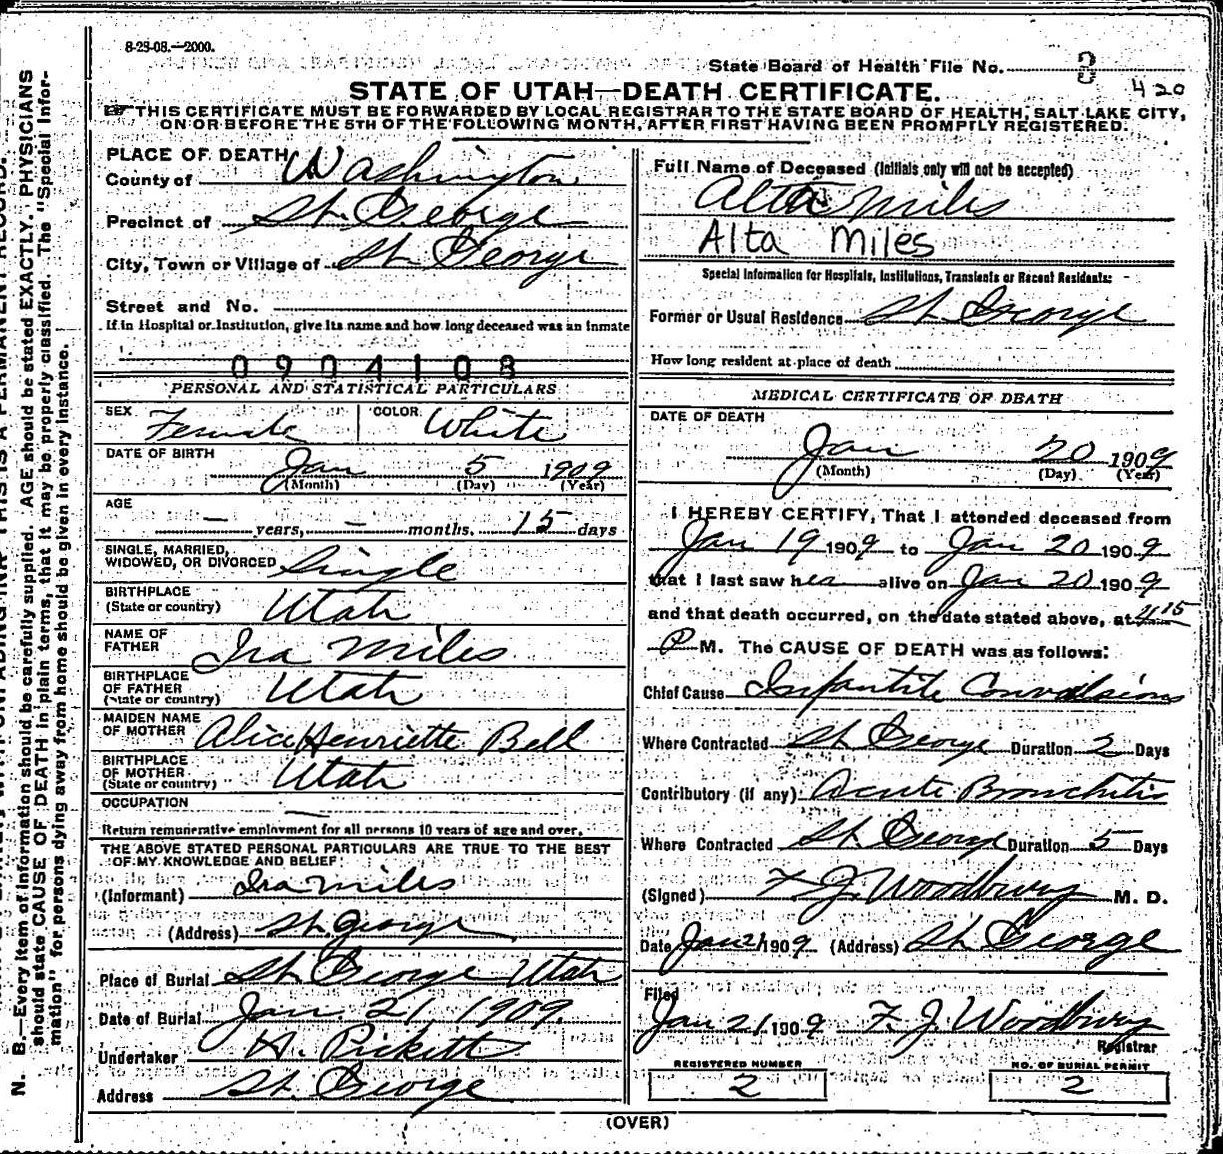 8-23-08.—2000.
State Board of Health File No. 3
420
STATE OF UTAH—DEATH CERTIFICATE.
THIS CERTIFICATE MUST BE FORWARDED BY LOCAL REGISTRAR TO THE STATE BOARD OF HEALTH, SALT LAKE CITY,
ON OR BEFORE THE 5TH OF THE FOLLOWING MONTH, AFTER FIRST HAVING BEEN PROMPTLY REGISTERED.
PLACE OF DEATH
County of Washington
Precinct of St. George
City, Town or Village of St. George
Street and No.
If in Hospital or Institution, give its name and how long deceased was an inmate
0904108
PERSONAL AND STATISTICAL PARTICULARS
SEX Female COLOR White
DATE OF BIRTH
Jan 5 1909
(Month) (Day) (Year)
AGE
— years, — months, 15 days
SINGLE, MARRIED,
WIDOWED, OR DIVORCED Single
BIRTHPLACE
(State or country) Utah
NAME OF
FATHER Ira Miles
BIRTHPLACE
OF FATHER
(State or country) Utah
MAIDEN NAME
OF MOTHER Alice Henriette Bell
BIRTHPLACE
OF MOTHER
(State or country) Utah
OCCUPATION —
Return remunerative employment for all persons 10 years of age and over.
THE ABOVE STATED PERSONAL PARTICULARS ARE TRUE TO THE BEST
OF MY KNOWLEDGE AND BELIEF:
(Informant) Ira Miles
(Address) St. George
Place of Burial St. George Utah
Date of Burial Jan. 21, 1909.
Undertaker H. Pickett
Address St. George
Full Name of Deceased (Initials only will not be accepted)
Alta Miles
Alta Miles
Special Information for Hospitals, Institutions, Transients or Recent Residents:
Former or Usual Residence St. George
How long resident at place of death
MEDICAL CERTIFICATE OF DEATH
DATE OF DEATH
Jan 20 1909
(Month) (Day) (Year)
I HEREBY CERTIFY, That I attended deceased from
Jan 19 1909 to Jan 20 1909
that I last saw her alive on Jan 20 1909
and that death occurred, on the date stated above, at 4 15
P M. The CAUSE OF DEATH was as follows:
Chief Cause Infantile Convulsions
Where Contracted St. George Duration 2 Days
Contributory (if any) Acute Bronchitis
Where Contracted St. George Duration 5 Days
(Signed) F. J. Woodbury M. D.
Date Jan 21 1909 (Address) St. George
Filed
Jan 21 1909 F. J. Woodbury
Registrar
REGISTERED NUMBER
2
NO. OF BURIAL PERMIT
2
(OVER)
N. B.—Every item of information should be carefully supplied. AGE should be stated EXACTLY. PHYSICIANS
should state CAUSE OF DEATH in plain terms, that it may be properly classified. The "Special Infor-
mation" for persons dying away from home should be given in every instance.